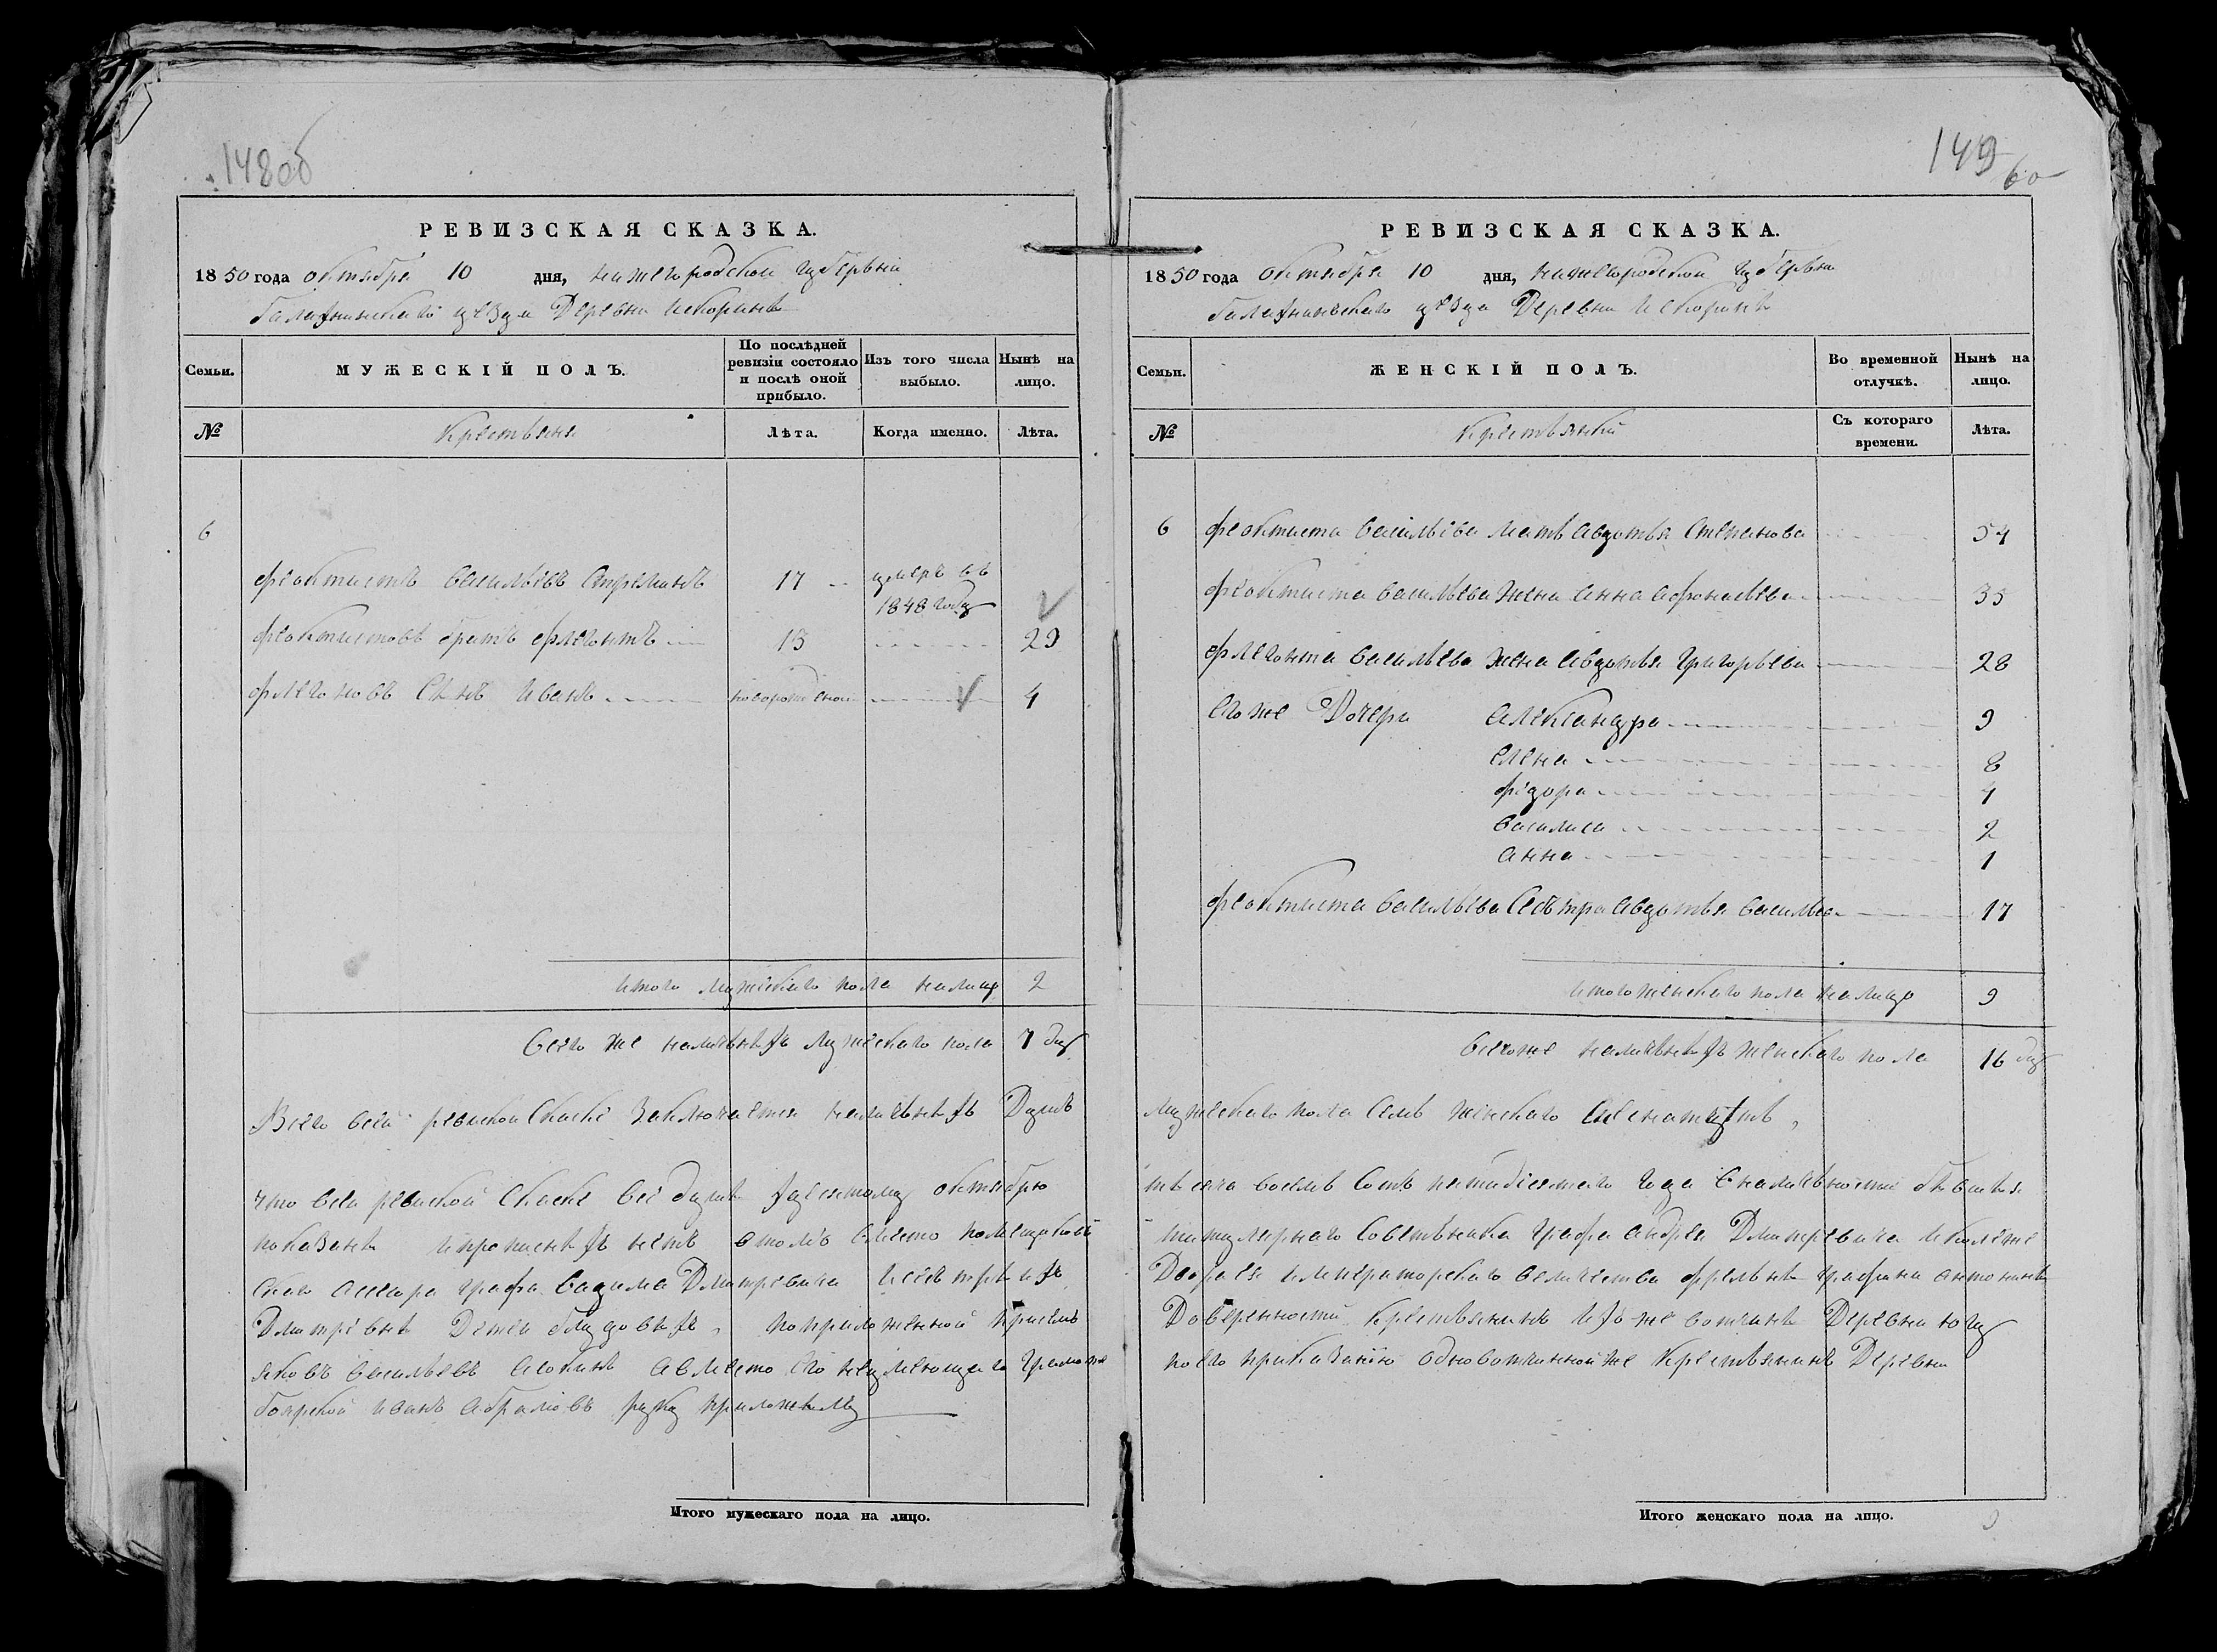 148об
РЕВИЗСКАЯ СКАЗКА.
1850 года октября 10 дня, нижегородской губернии
балахнинскаго уезда Деревни
Семьи.
МУЖЕСКІЙ ПОЛЪ.
По послѣдней ревизіи состояло и послѣ оной прибыло.
Изъ того числа выбыло.
Нынѣ на лицо.
№
Крестьяне
Лѣта.
Когда именно.
Лѣта.
6
феоктистъ васильевъ 17 умеръ въ
1848 году
феоктистовъ братъ флегонтъ 13 29
флегоновъ сынъ иванъ новорожденой 4
итого мужескаго пола налицо 2
всего же наличныхъ мужескаго пола 7 душ
Всего всей ревиской скаске заключается наличныхъ Душъ
что всей ревиской скаске все души десятому октябрю
показаны и прописныхъ нетъ в томъ вместо
графа вадима Дмитревича и сестры ихъ
Дмитревны Детей блудовыхъ, по приложенной
яковъ васильевъ а вместо его неумеющаго грамоте
иванъ абрамовъ руку приложилъ
Итого мужескаго пола на лицо.
149
60
РЕВИЗСКАЯ СКАЗКА.
1850 года октября 10 дня, нижегородской губернии
балахнинскаго уезда Деревни
Семьи.
ЖЕНСКІЙ ПОЛЪ.
Во временной отлучкѣ.
Нынѣ на лицо.
№
Крестьянки
Съ котораго времени.
Лѣта.
6 феоктиста васильева мать авдотья степанова 54
феоктиста васильева жена анна афонасьева 35
флегонта васильева жена авдотья григорьева 28
его же Дочери александра 9
елена 8
федора 4
василиса 2
анна 1
феоктиста васильева сестра авдотья васильева 17
итого женскаго пола налицо 9
всего же наличныхъ женскаго пола 16 душ
мужескаго пола семь женскаго
тысяча восемь сотъ пятидесятаго года в наличности
титулярнаго советника графа андрея Дмитревича
Двора ея императорскаго величества фрельны графини антонины
Доверенности крестьянинъ ихъ же вотчины Деревни
по его приказанию одновотчинной же крестьянинъ Деревни
Итого женскаго пола на лицо. 9